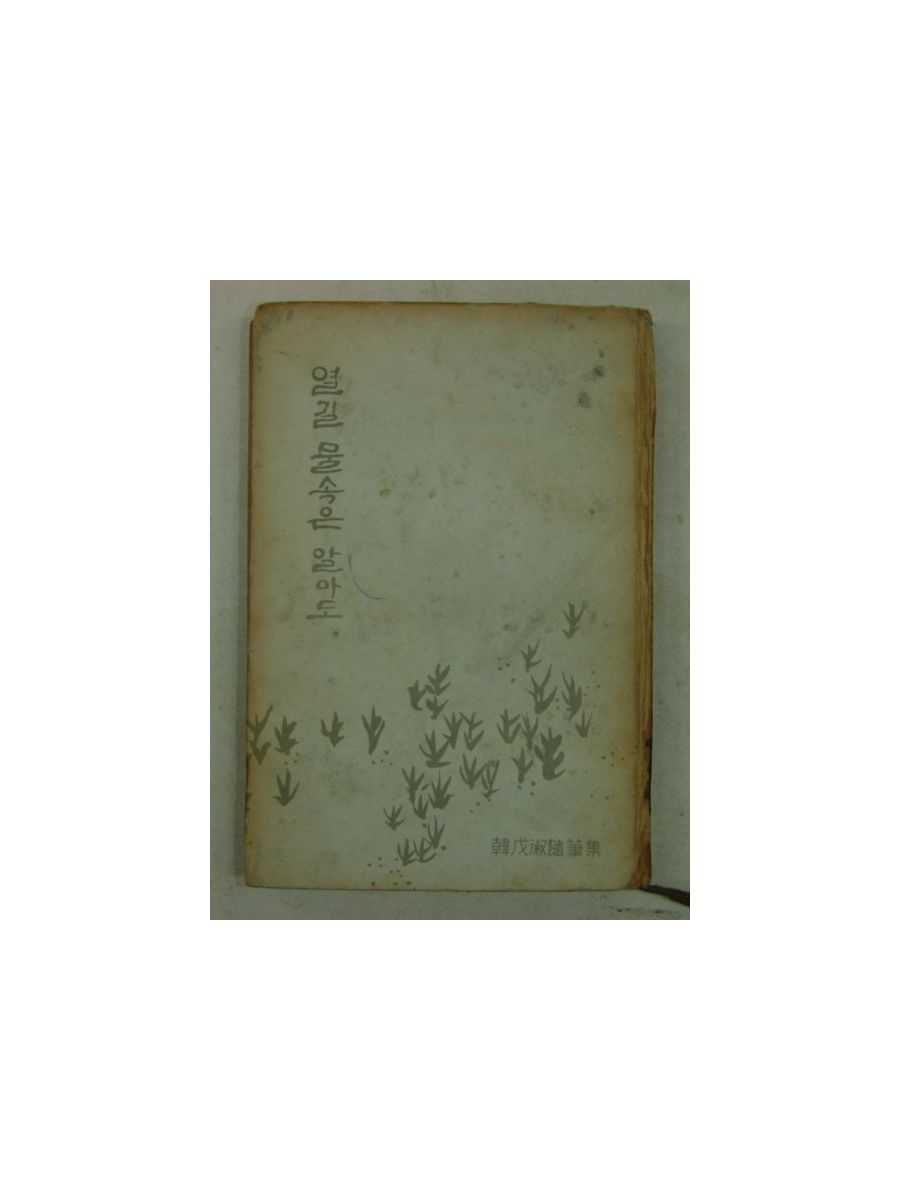 열길 물속은 알아도
韓戊淑隨筆集